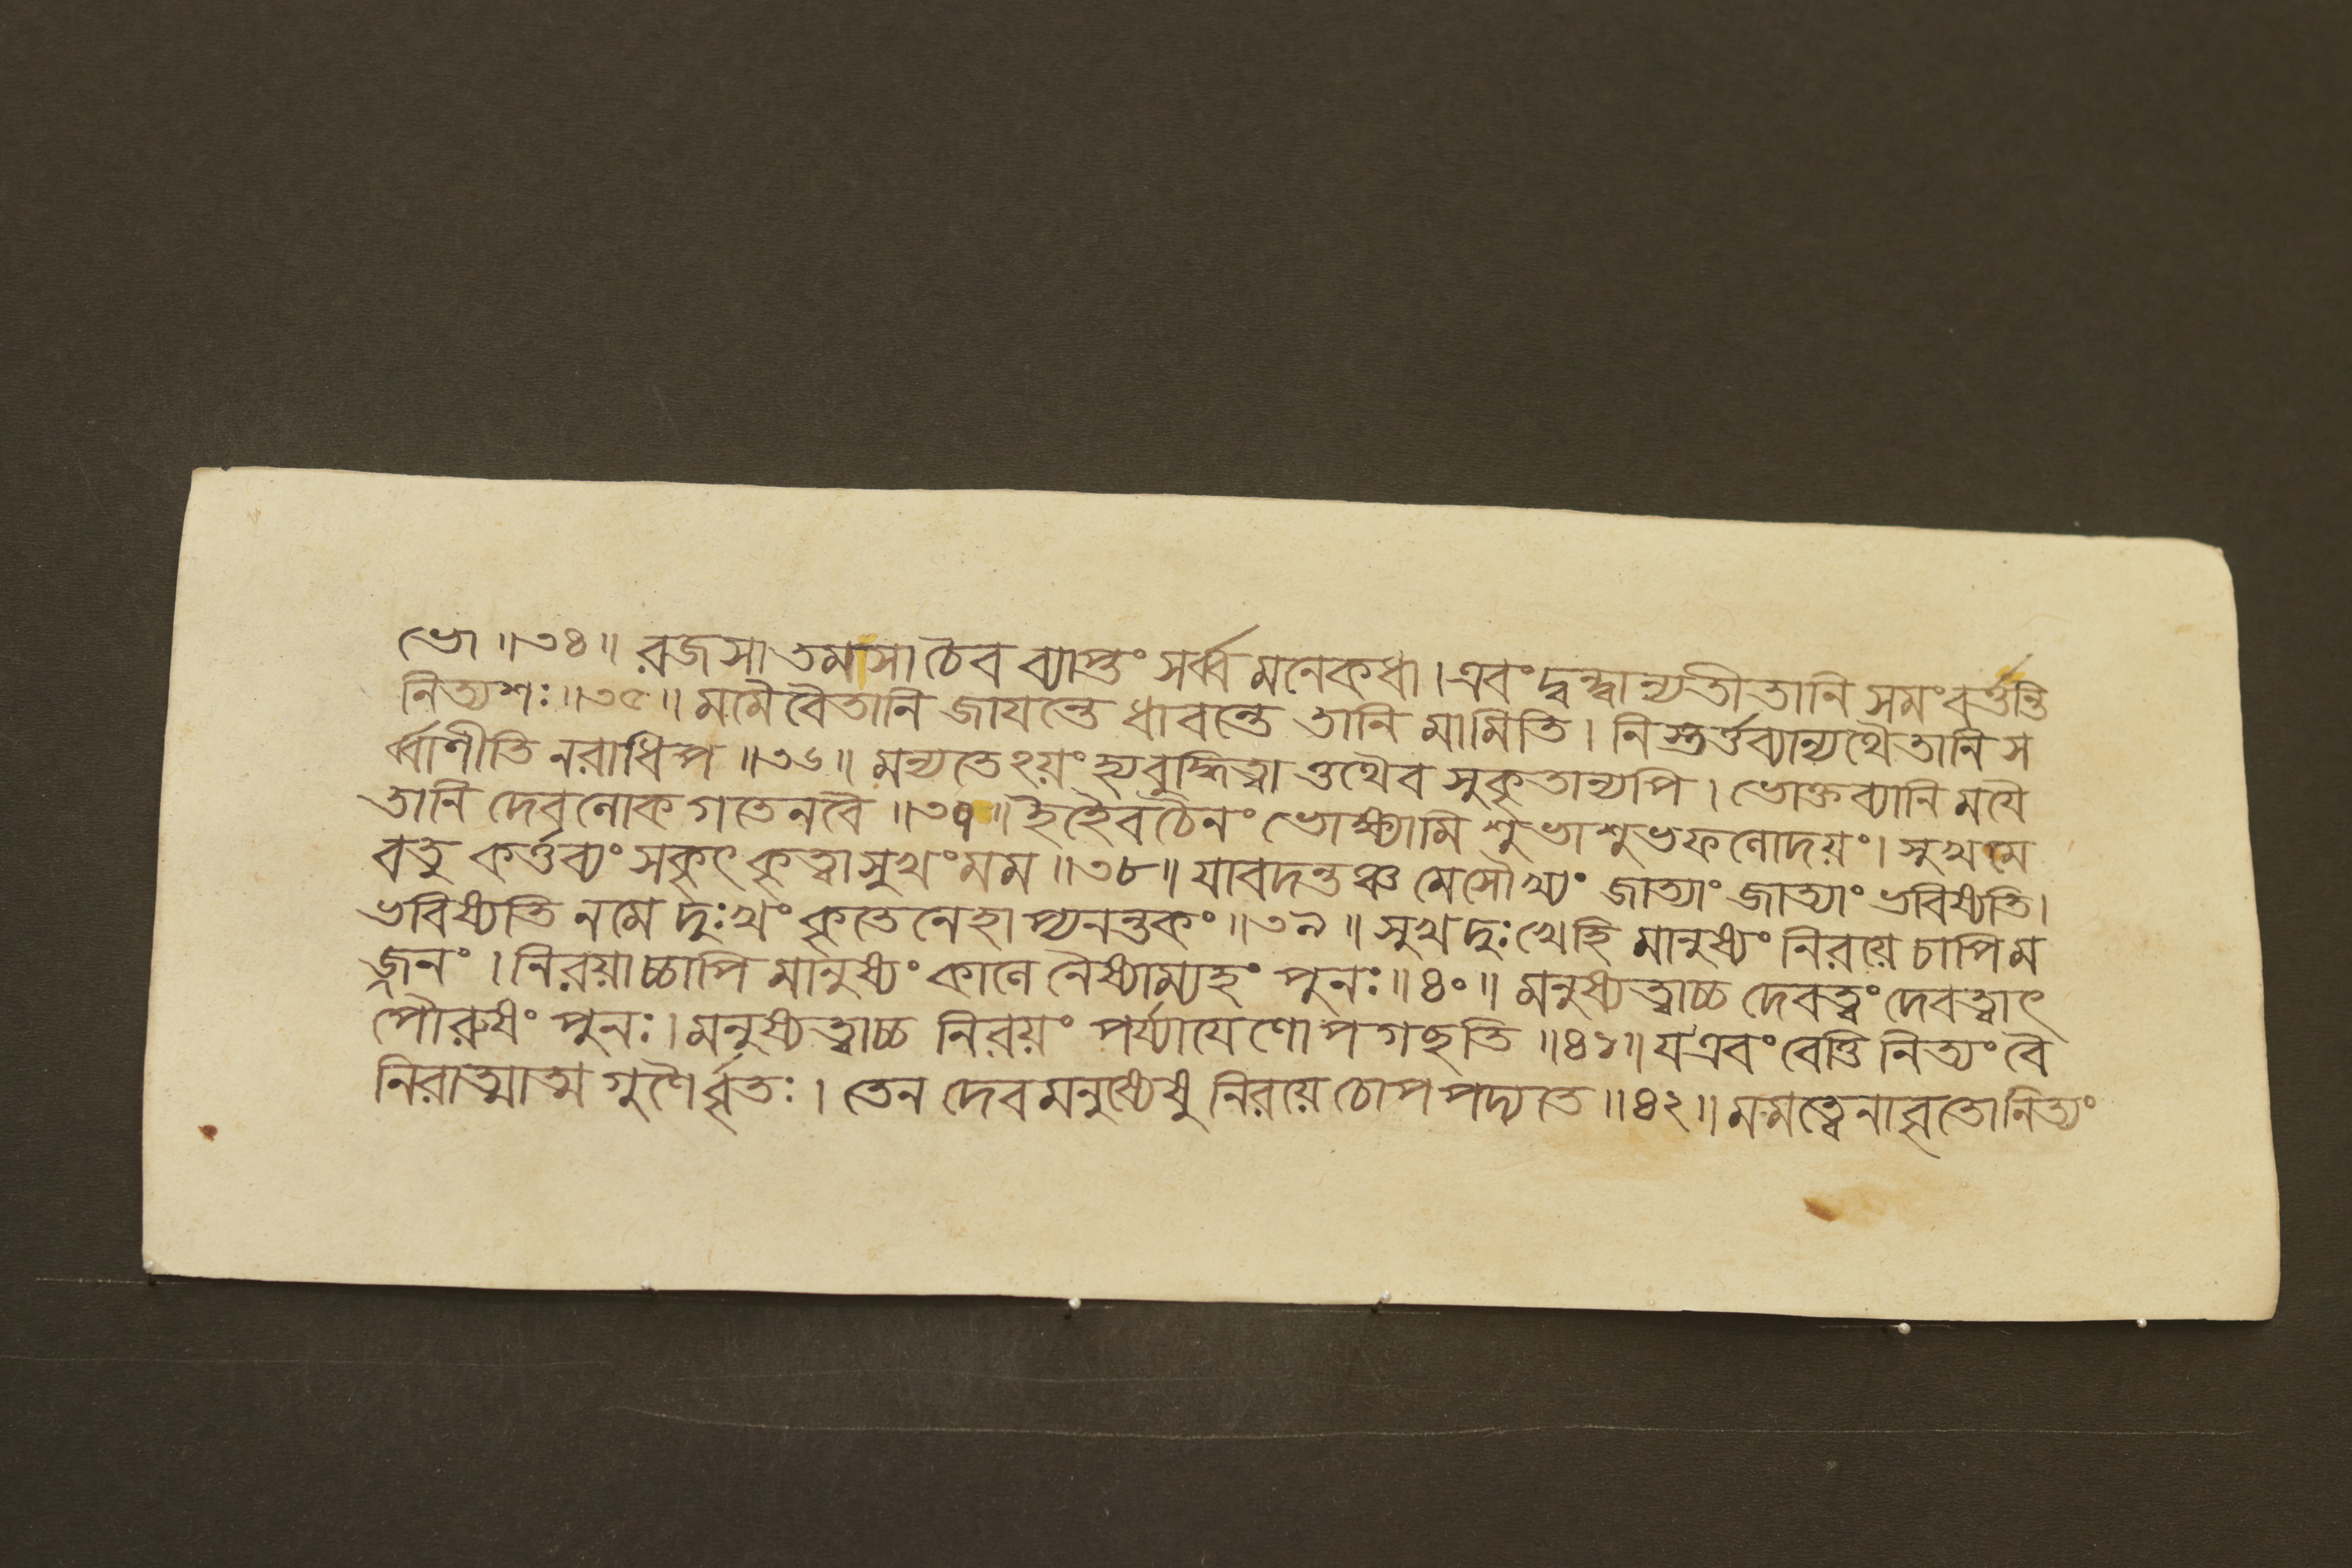 ভো ॥৩৪॥ রজসা তমসা চৈব ব্যাপ্তং সর্ব্ব মনেকধা । এবং দ্বন্দ্বান্যতীতানি সমং বর্ত্তন্তি
নিত্যশঃ ॥৩৫॥ মমৈ বৈতানি জাযন্তে ধাবন্তে তানি মামিতি । নিস্তর্ত্তব্যান্যথৈতানি স
র্ব্বাণীতি নরাধিপ ॥৩৬॥ মন্যতেঽয়ং হ্যবুদ্ধিত্বা ত্তথৈব সুকৃতান্যপি । ভোক্তব্যানি মযৈ
তানি দেবলোক গতেনবৈ ॥৩৭॥ ইহৈবচৈনং ভোক্ষ্যামি শুভাশুভফলোদয়ং । সুখমে
বতু কর্ত্তব্যং সকৃৎ কৃত্বা সুখং মম ॥৩৮॥ যাবদন্তঞ্চ মেসৌখ্যং জাত্যাং জাত্যাং ভবিষ্যতি ।
ভবিষ্যতি নমে দুঃখং কৃতেনেহাপ্যনন্তকং ॥৩৯॥ সুখদুঃখেহি মানুষ্যং নিরয়ে চাপিম
জ্জনং । নিরয়াচ্চাপি মানুষ্যং কালে নৈষ্যাম্যহং পুনঃ ॥৪০॥ মনুষ্যত্বাচ্চ দেবত্বং দেবত্বাৎ
পৌরুষং পুনঃ । মনুষ্যত্বাচ্চ নিরয়ং পর্য্যাযেণোপগছতি ॥৪১॥ যএবং বেত্তি নিত্যং বৈ
নিরাত্মাত্ম গুণৈর্বৃতঃ । তেন দেবমনুষ্যেষু নিরয়ে চোপপদ্যতে ॥৪২॥ মমত্বেনাবৃতোনিত্যং